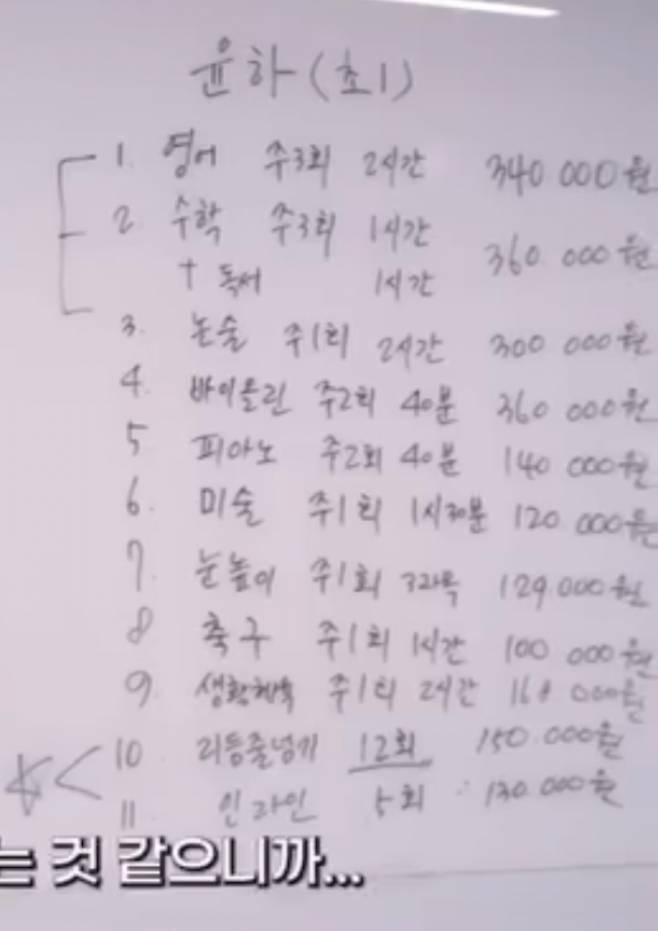 윤하(초1)
1. 영어 주3회 2시간 340 000원
2. 수학 주3회 1시간
+ 독서 1시간 360 000원
3. 논술 주1회 2시간 300 000원
4. 바이올린 주2회 40분 360 000원
5 피아노 주2회 40분 140 000원
6. 미술 주1회 1시30분 120 000원
7. 눈높이 주1회 3과목 129.000원
8 축구 주1회 1시간 100 000원
9. 생활체육 주1회 2시간 000원
10 리듬줄넘기 12회 150.000원
11 인라인 5회 130 000원
는 것 같으니까...